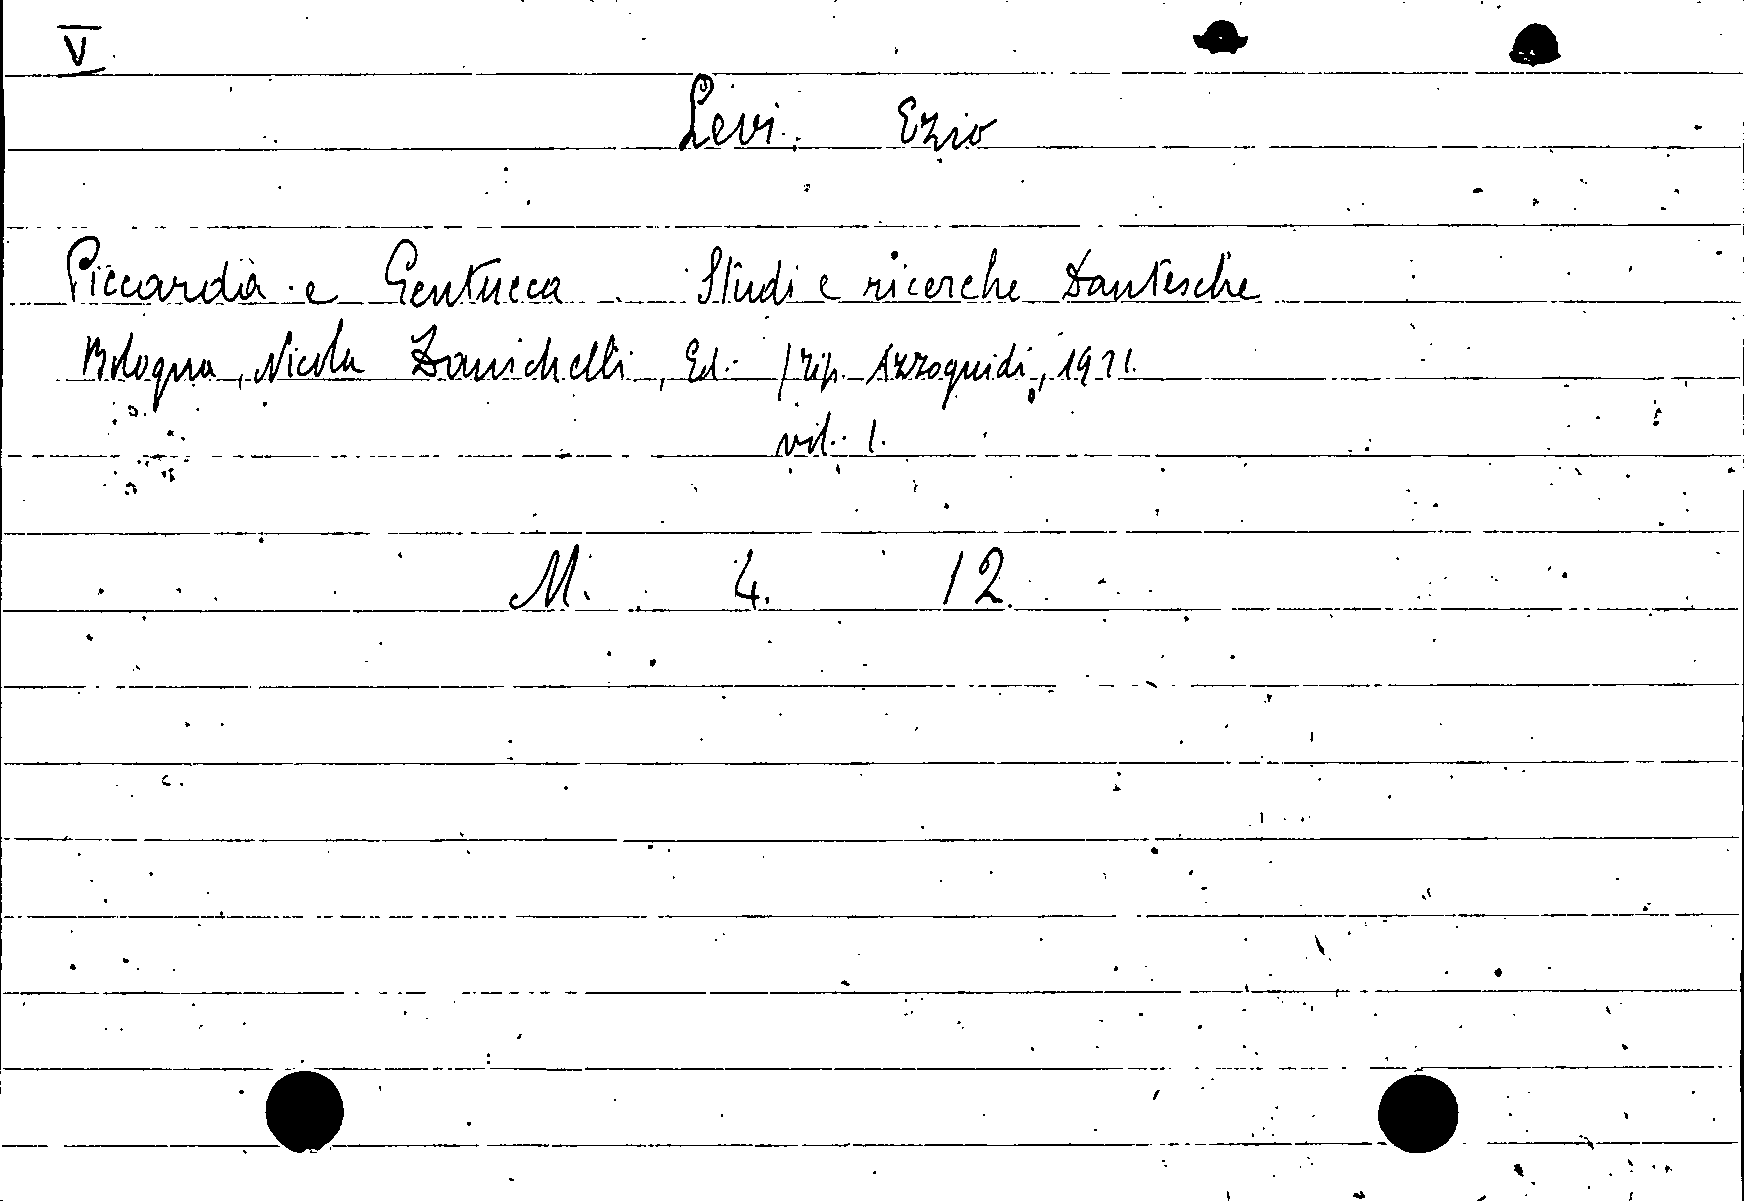 V
Levi Ezio
Piccarda e Gentucca. Studi e ricerche Dantesche
Bologna, Nicola Zanichelli, Ed. (Tip. Azzoguidi,
vol. 1.
M. 4. 12.